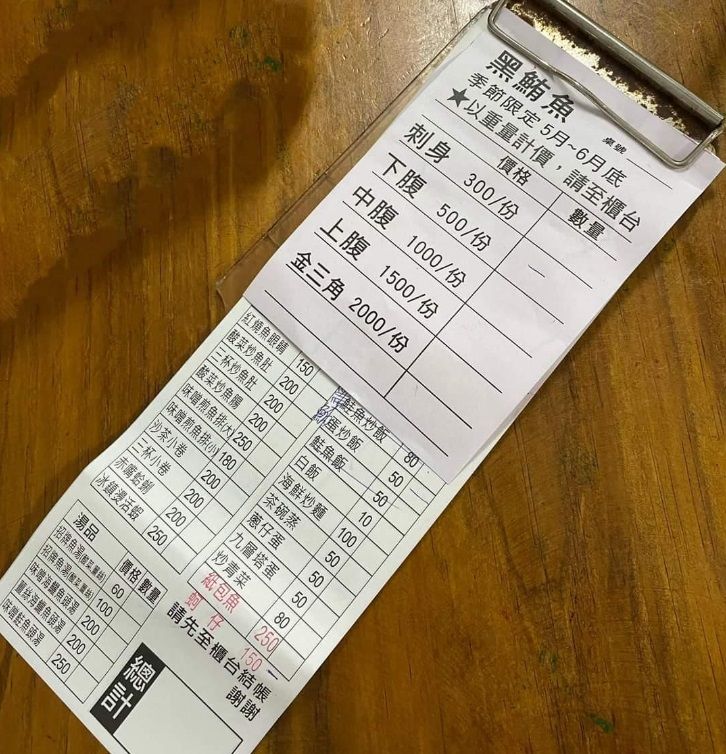 黑鮪魚 桌號
季節限定 5月~6月底
★以重量計價，請至櫃台
價格 數量
刺身 300/份
下腹 500/份
中腹 1000/份
上腹 1500/份
金三角 2000/份
紅燒魚眼睛 150
酸菜炒魚肚 200
三杯炒魚肚 200
酸菜炒魚腸 200
味噌煎魚排(大) 250
味噌煎魚排(小) 180
沙茶小卷 200
三杯小卷 200
赤嘴蛤蜊 200
冰鎮燙活蝦 250
鮭魚炒飯 80
蛋炒飯 50
鮭魚飯 50
白飯 10
海鮮炒麵 100
茶碗蒸 50
蔥仔蛋 50
九層塔蛋 50
炒青菜 80
紙包魚 250
蚵仔 150
湯品 價格 數量
招牌魚湯 60
招牌魚湯 100
味噌海鱺魚頭湯 200
薑絲海鱺魚頭湯 200
味噌鮭魚頭湯 250
總計
請先至櫃台結帳
謝謝